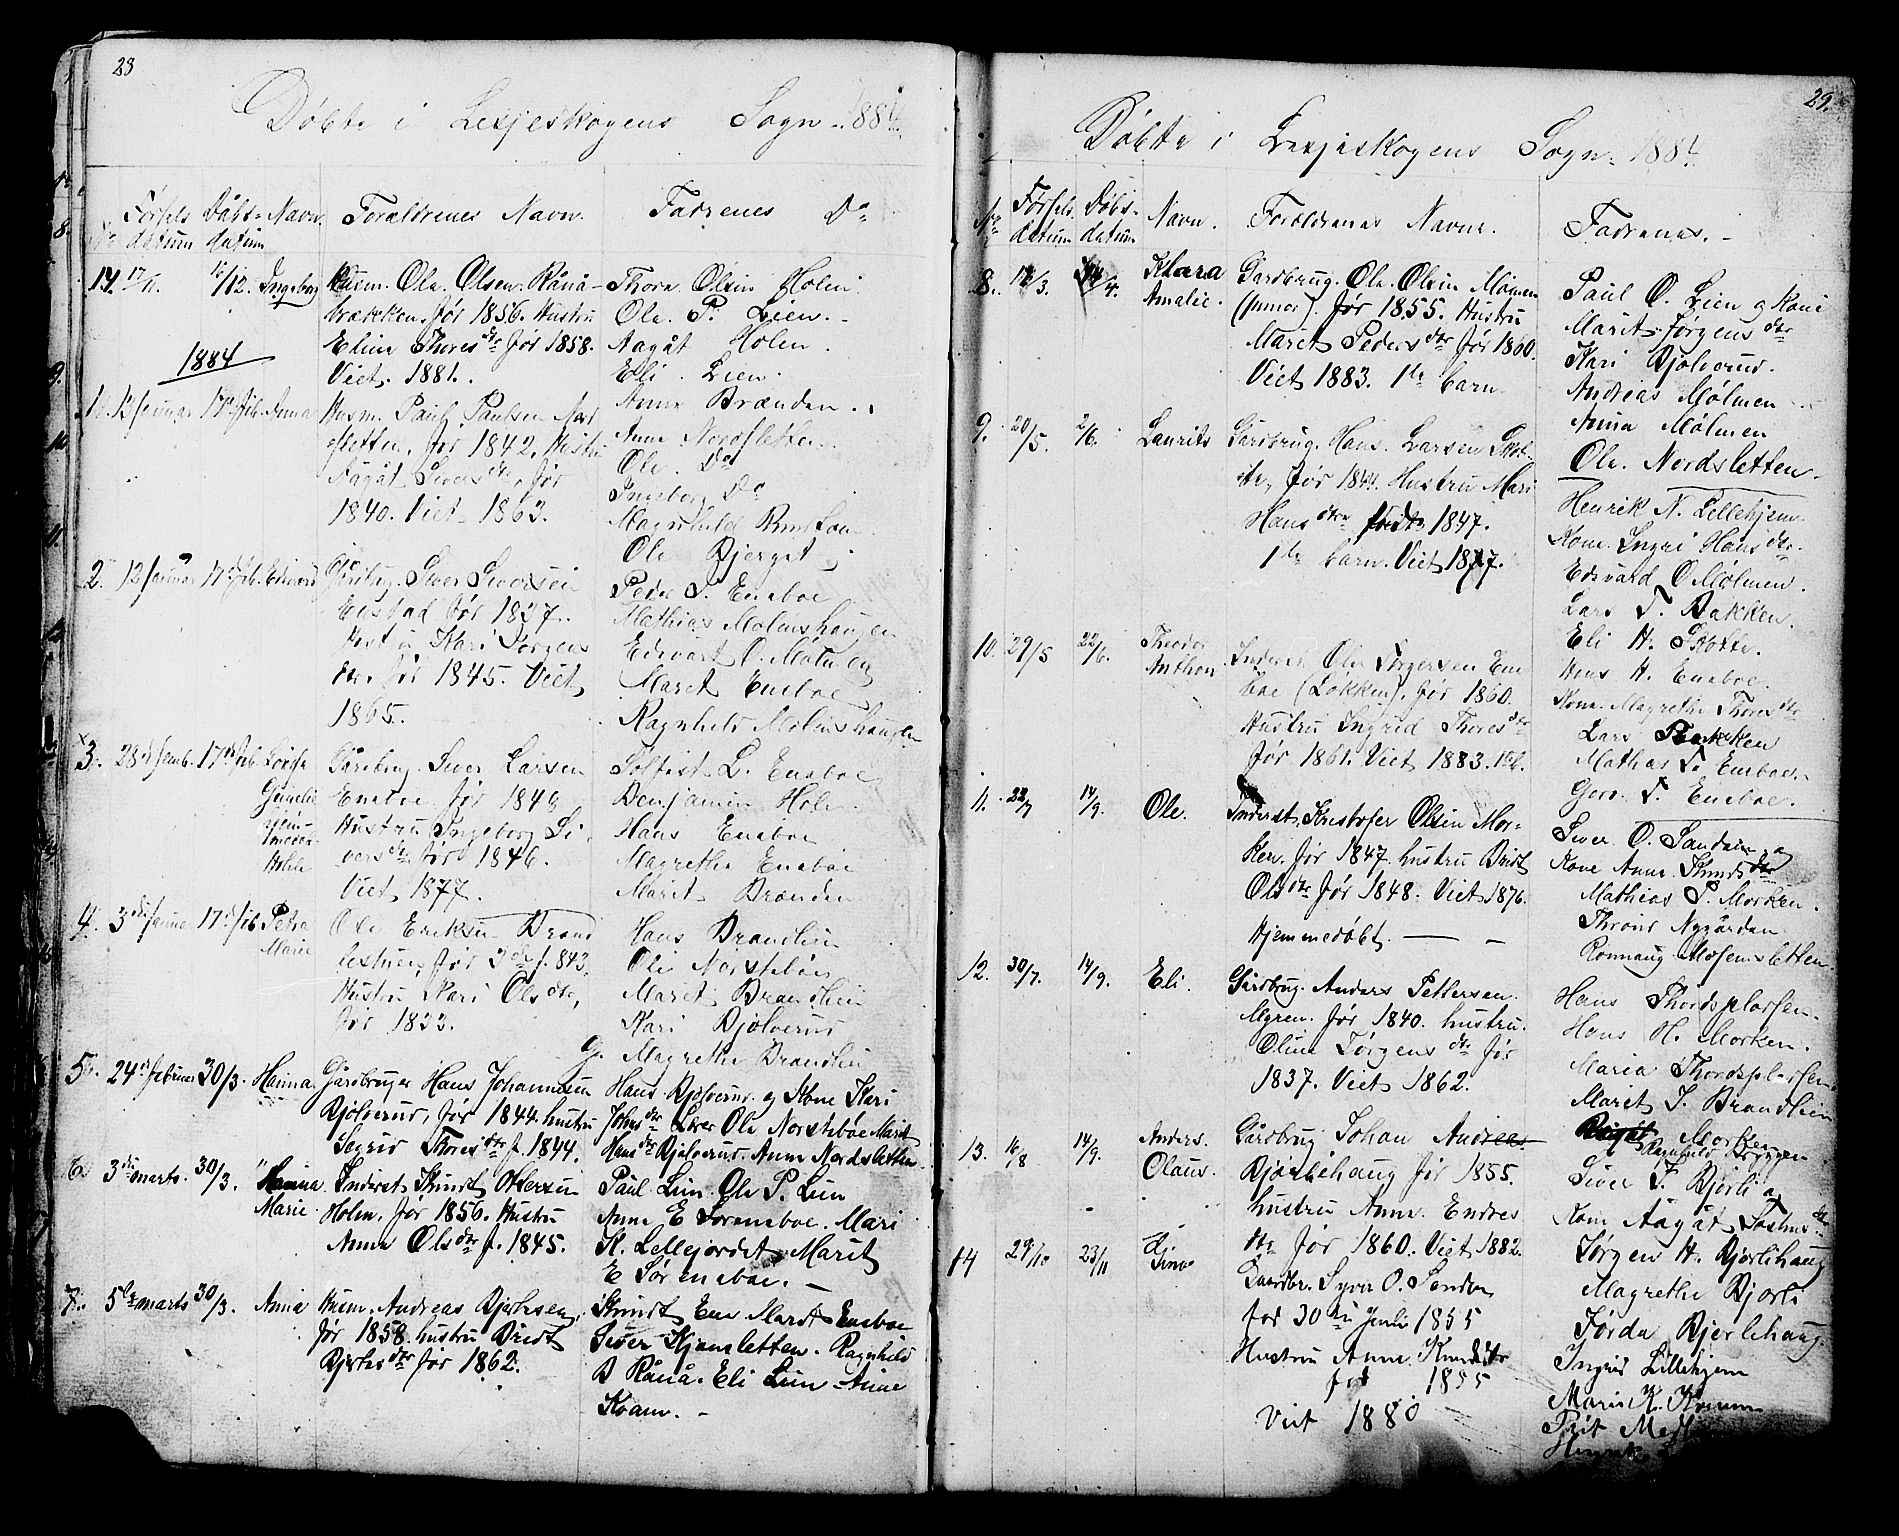 28
Döbte i Lesjeskogens Sogn 1884
No Fødsels datum Dåbs datum Navn. Foraldrenes Navn. Fadrenes Do
14. 17/11. 16/12. Ingeborg
Husm. Ole Olsen Rånå-
brækken. för 1856. Hustru
Eline Thoresdtr för 1858.
Viet. 1881.
Thore Olsen Holm.
Ole. P. Lien.
Aagåt Holen.
Eli. Lien.
Anne Brænden.
1884
1. 17de feb. Anna
Husm. Paul Paulsen Nord
sletten, för 1842, Hustru
Aagåt Siversdtr, för
1840. Viet 1863.
Anne Nordsletten.
Ole. Do
Ingeborg Do
Magnhild
Ole Bjerget
2. 12 Januar 17de feb. Edvard
Gårdbrug. Siver Siversen
Enstad för 1837.
Hustru Kari Jörgens
dtr. för 1845. Viet
1865.
Peder S. Eneboe
Mathias Mölmshaugen
Edvart O. Mölmen
Maret Eneboe
Ragnhild Mölmshaugen
3. 28de 17de feb. Lovise
Gårdbrug. Siver Larsen
Eneboe för 1840
Hustru Ingeborg Si-
versdtr för 1846.
Viet 1877.
Solfest L. Eneboe
Benjamin Holm.
Hans Eneboe
Magrethe Eneboe
Marit Brænden
4. 3de Januar 17de feb Petra
Marie
Ole Eriksen Brand
listuen, för 3de f. 843.
Hustru Kari Olsdtr,
för 1833.
Hans Brandlien
Ole Norstebön
Marit Brandlien
Kari Bjölverud
G. Magrethe Brandlien
5. 24de februar 30/3. Hanna.
Gårdbruger Hans Johannsen
Bjölverud, för 1844. hustru
Sigrid Thoresdtr f. 1844.
Hans Bjölverud og Kone Kari
Johnsdtr Lörer Ole Norsteböe Marit
Hansdtr Bjölverud. Anne Nordsletten
6. 3de marts. 30/3. Hanna
Marie.
Inderst Knudt Ottersen
Holm. för 1856. Hustru
Anne Olsdtr f. 1845.
Paul Lien. Ole P. Lien
Anne E Söreneboe. Mari
K. Lellejordet Marit
E Sör eneboe.
7. 5te marts 30/3. Anna
Husm. Andreas Bjertesen,
för 1858. hustru Bredt
Bjertesdtr för 1862.
Knudt Ene Mardt Eneboe
Siver Kjemsletten. Ragnhild
B Rånå. Eli Lien Anne
Kvam.
29.
Döbte i Lesjeskogens Sogn 1884
No Födsels datum Döbs- datum Navn. Foraldrenes Navne. Fadrenes.
8. 12/3. 14/4. Klara
Amalie.
Gårdbrug. Ole. Olsen Mölmen
(junior). för 1855. Hustru
Maret Pedersdtr för 1860.
Viet 1883. 1te barn.
Paul O. Lien og Kone
Marit Jörgensdtr
Kari Bjölverud.
Andreas Mölmen
Anna Mölmen
Ole. Nordsletten.
9. 20/5. 2/6. Laurits
Gårdbrug. Hans. Larsen Skot-
te, för 1844. Hustru Mari
Hansdtr födt 1847.
1te barn. Viet 1877.
Henrik N. Lillehjem.
Kone Ingri Hansdtr.
Edvard O Mölmen.
Lars T. Bakken.
Eli H. Skotte.
10. 29/5 22/6. Theodor
Anthon
Inderst Ole Törgersen Ene
boe (Løkken), för 1860.
Hustru Ingrid Thoresdtr
för 1861. Viet 1883. 1te b.
Hans H. Eneboe.
Kone. Magrethe Thoresdtr
Lars Bakken
Mathis T. Eneboe.
Goro. T. Eneboe.
11. 22/7 14/9. Ole.
Inderst. Kristofer Olsen Mor-
ken. för 1847. hustru Bredt
Olsdtr för 1848. Viet 1876.
Hjemmedöbt.
Siver O. Sanden og
Kone Anne Knudsdtr
Mathias P. Morken.
Thrond Nygården
Ronnaug Mosensletten.
12. 30/7. 14/9. Eli.
Gårdbrug. Anders Pettersen.
Ulgren. för 1840. hustru.
Oline Törgensdtr för
1837. Viet 1862.
Hans Thordsplassen.
Hans H. Morken.
Maria Thordsplassen
Marit S. Brandlien
Morken
13. 16/8 14/9. Anders.
Olaus.
Gårdbrug Johan Andreas
Bjorlihaug för 1855.
hustru Anne. Endres
dtr för 1860. Viet 1882.
Siver T. Bjorli og
Kone Aagåt
Jörgen H. Bjorlihaug
Magrethe Bjorli
Törda Bjerlehaug.
14 29/10 23/11
Gaardbr. Syver O. Sanden
fød 30te Juni 1855
Hustru Anne Knudsdtr
fød 1855
Viet 1880
Ingrid Lillehjem
Maria K. Kvam